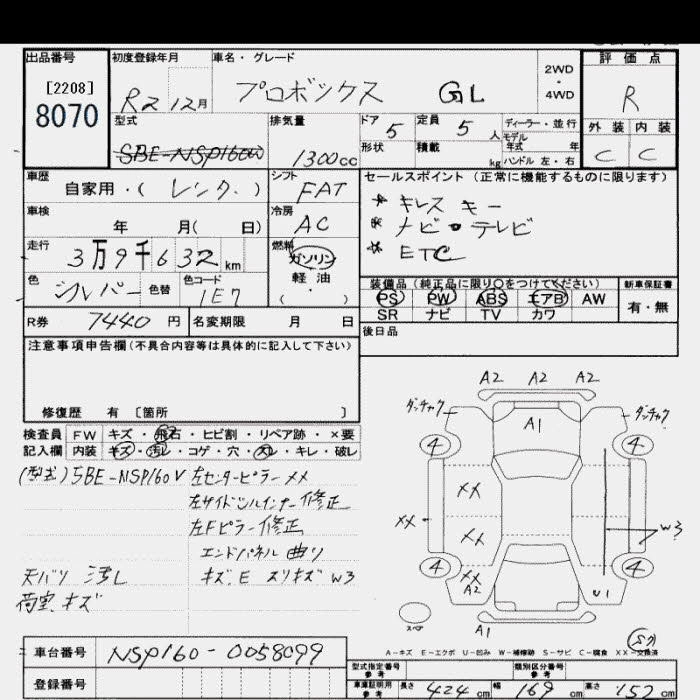 出品番号 初度登録年月 車名・グレード 評価点
[2208]
8070
R2 12月 プロボックス GL 2WD・4WD R
型式 排気量 ドア 5 定員 5人 ディーラー・並行 外装 内装
モデル年式 年
SBE-NSP160 1300cc 形状 積載 kg ハンドル 左・右 C C
車歴 自家用・(レンタ.) シフト FAT セールスポイント(正常に機能するものに限ります)
* キレス キー
車検 年 月( 日) 冷房 AC * ナビ・テレビ
* ETC
走行 3万9千632km 燃料 ガソリン 軽油 ( )
色 シルバー 色替 色コード 1E7
装備品(純正品に限り○をつけてください) 新車保証書
PS PW ABS エアB AW 有・無
SR ナビ TV カワ
R券 7440円 名変期限 月 日 後日品
注意事項申告欄(不具合内容等は具体的に記入して下さい)
修復歴 有 〔箇所 〕
検査員 FW キズ・飛石・ヒビ割・リペア跡・×要
記入欄 内装 キズ・汚れ・コゲ・穴・スレ・キレ・破レ
(型式)5BE-NSP160V 左センターピラー XX
左サイドシルインナー修正
左Fピラー修正
エンドパネル曲り
天バリ 汚レ キズ.E スリキズ W3
荷室.キズ
A2 A2 A2
ダンチャク A1 ダンチャク
4 4
XX
XX XX W3
4 4
XX
A2 U1
スペア A1
A-キズ E-エクボ U-凹み W-補修跡 S-サビ C-腐食 XX-交換済
車台番号 NSP160-0058099
登録番号
型式指定番号 参考 類別区分番号 参考
車庫証明用 参考 長さ 424cm 幅 169cm 高さ 152cm